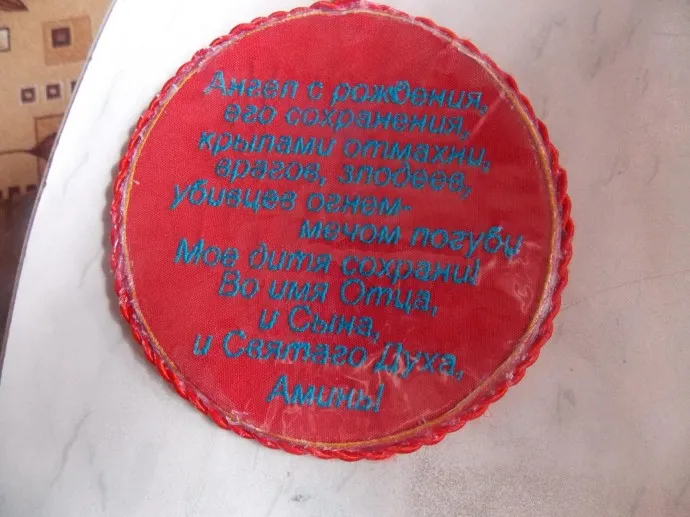 Ангел с рождения,
его сохранения,
крылами отмахни,
врагов, злодеев,
убивцев огнем-
мечом погуби
Мое дитя сохрани!
Во имя Отца,
и Сына,
и Святаго Духа,
Аминь!